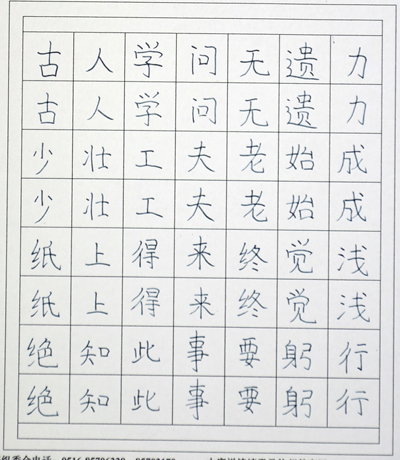 古人学问无遗力
古人学问无遗力
少壮工夫老始成
少壮工夫老始成
纸上得来终觉浅
纸上得来终觉浅
绝知此事要躬行
绝知此事要躬行